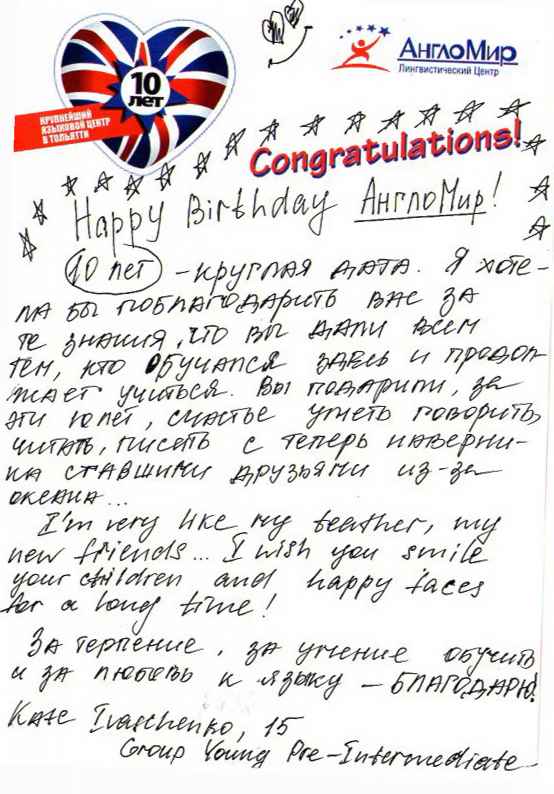 10
ЛЕТ
КРУПНЕЙШИЙ
ЯЗЫКОВОЙ ЦЕНТР
В ТОЛЬЯТТИ
АнглоМир
Лингвистический Центр
Congratulations!
Happy Birthday АнглоМир!
10 лет - круглая дата. Я хоте-
ла бы поблагодарить вас за
те знания, что вы дали всем
тем, кто обучался здесь и продол
жает учиться. Вы подарили, за
эти 10 лет, счастье уметь говорить,
читать, писать с теперь наверня-
ка ставшими друзьями из-за
океана...
I'm very like my teather, my
new friends... I wish you smile
your children and happy faces
for a long time!
За терпение, за умение обучить
и за любовь к языку - БЛАГОДАРЮ!
Kate Ivaschenko, 15
Group Young Pre-Intermediate